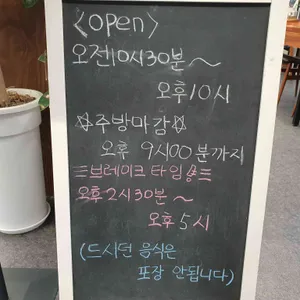 <open>
오전10시30분~
오후10시
☆주방마감☆
오후 9시00분까지
三브레이크타임三
오후2시30분~
오후5시
(드시던 음식은
포장 안됩니다)